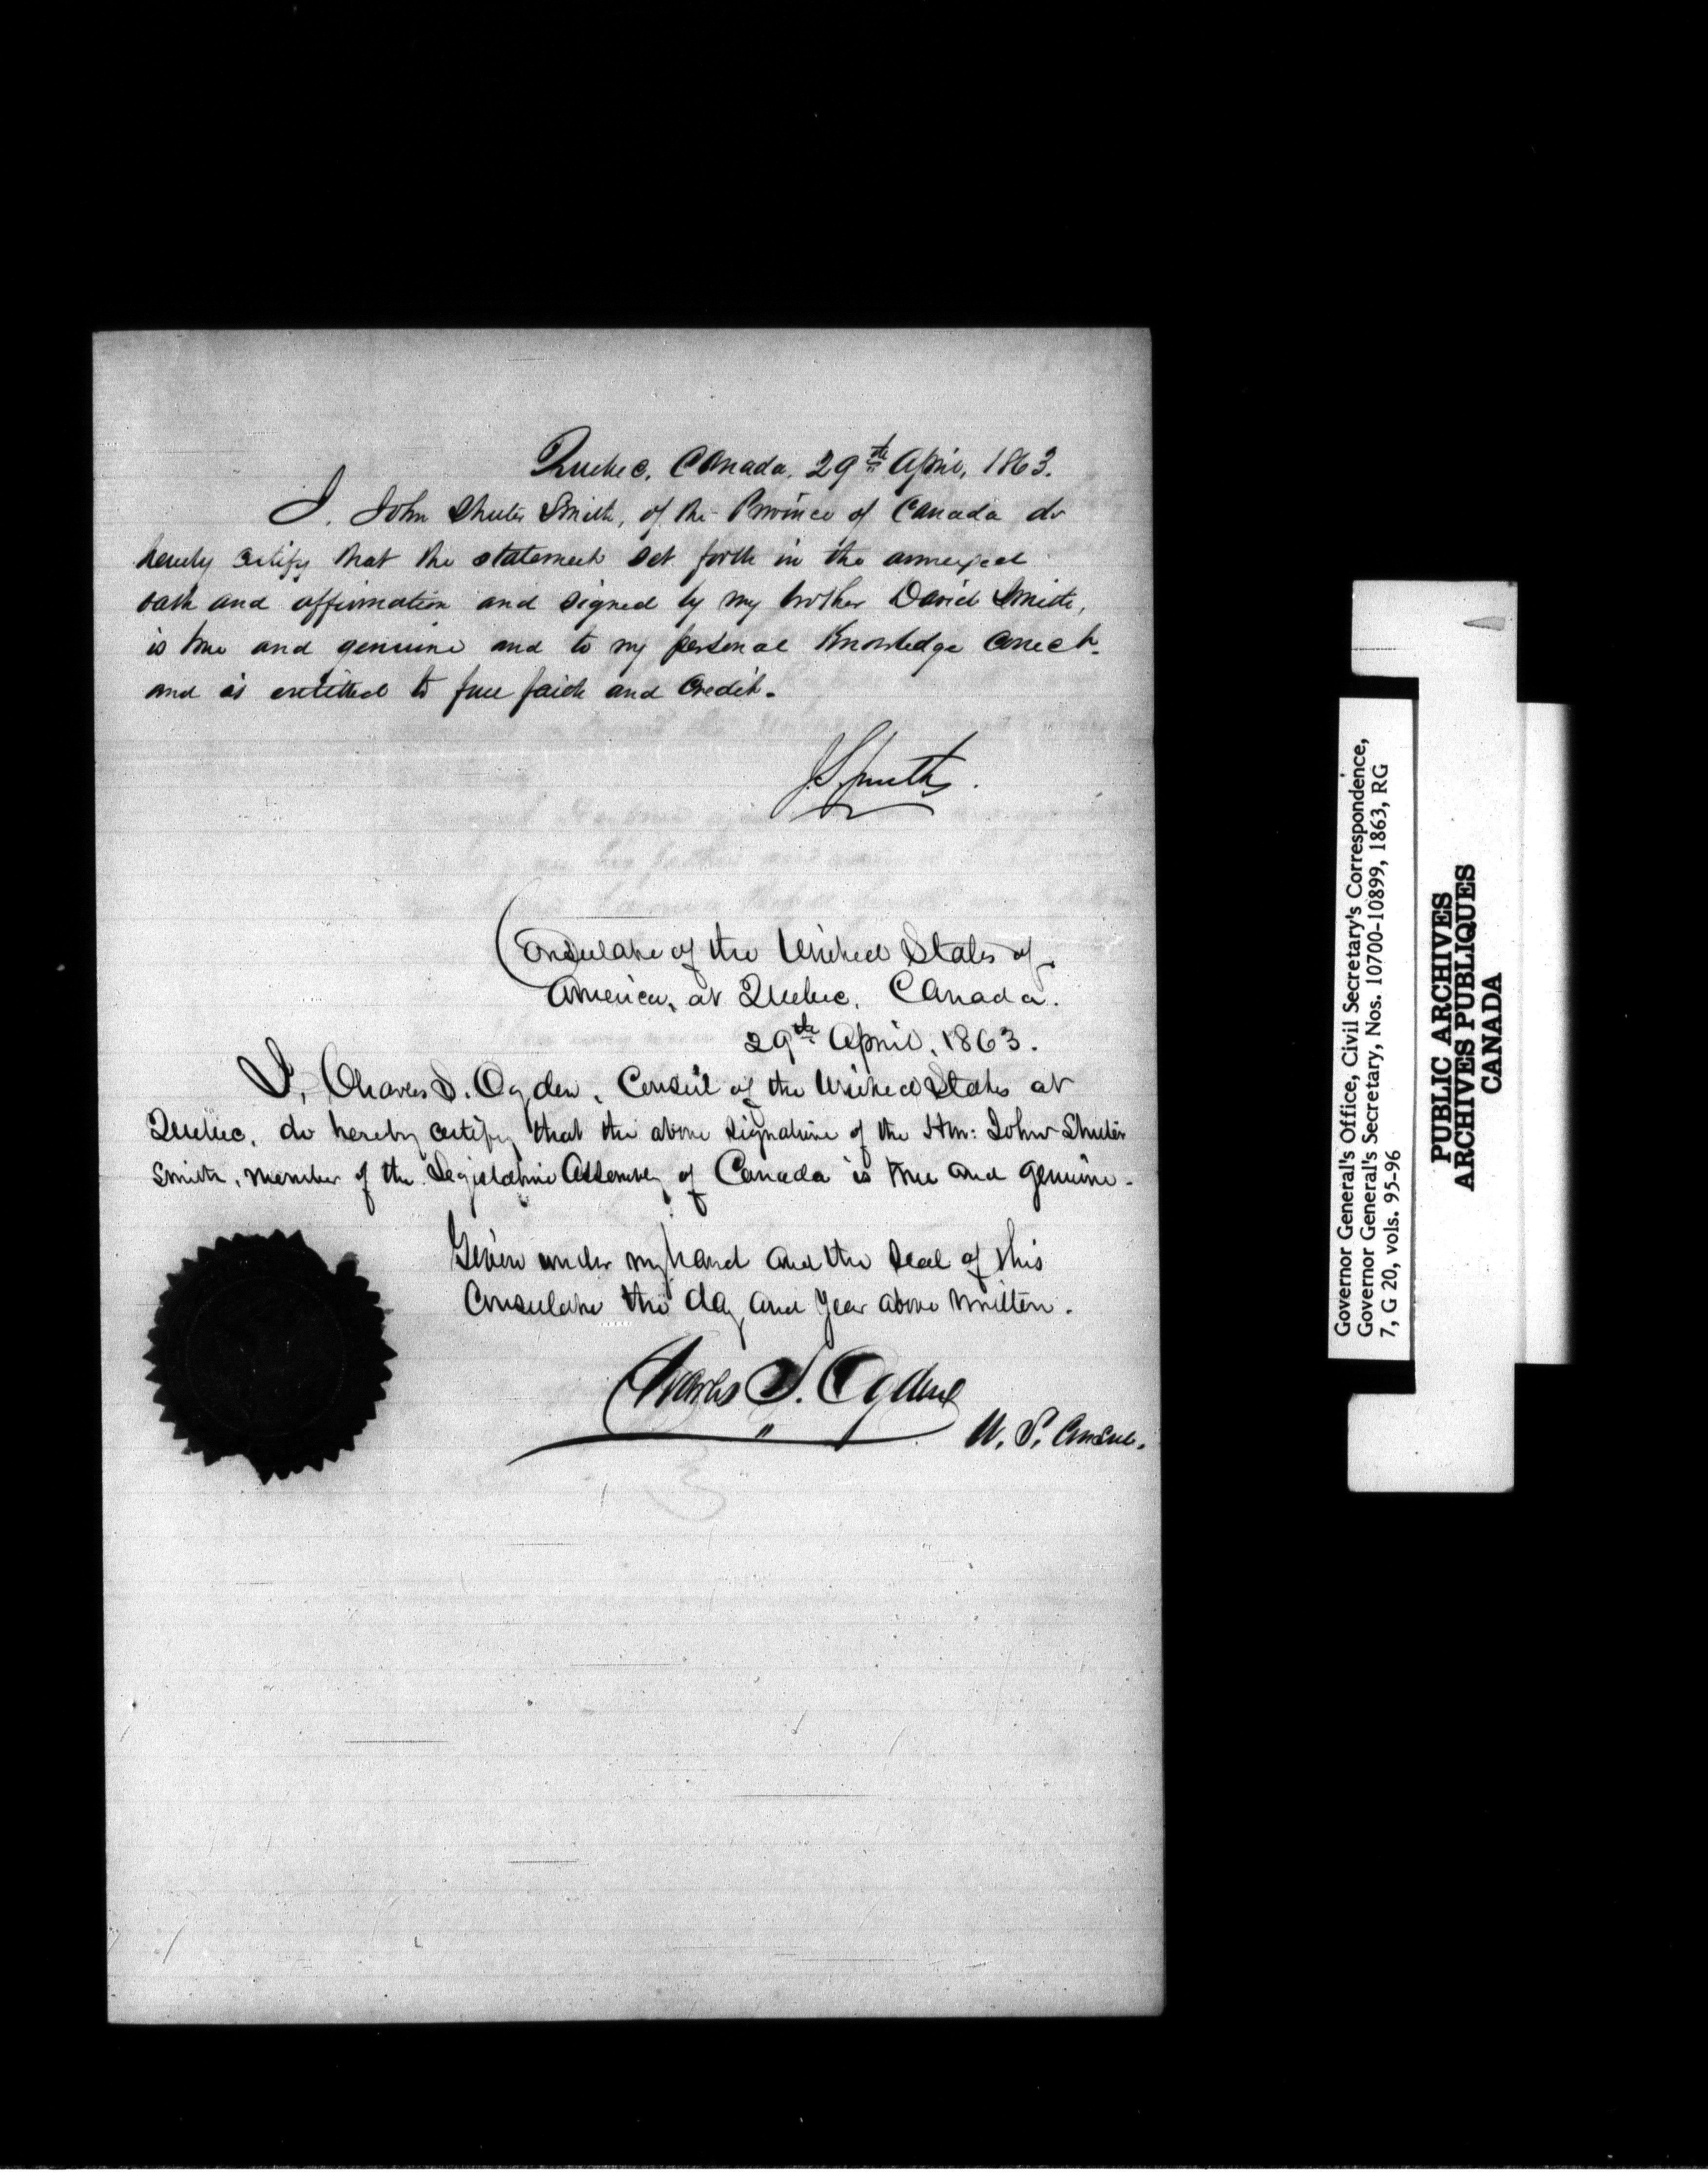 Quebec, Canada, 29th April, 1863.
I, John Shuter Smith, of the Province of Canada do
hereby certify that the statement set forth in the annexed
oath and affirmation and signed by my brother David Smith,
is true and genuine and to my personal knowledge correct.
and is entitled to full faith and credit.
J. S. Smith.
Consulate of the United States of
America, at Quebec, Canada.
29th April, 1863.
I, Charles S. Ogden, Consul of the United States at
Quebec, do hereby certify that the above signature of the Hon: John Shuter
Smith, member of the Legislative Assembly of Canada is true and genuine.
Given under my hand and the seal of this
Consulate the day and year above written.
Charles S. Ogden
U. S. Consul.
Governor General's Office, Civil Secretary's Correspondence,
Governor General's Secretary, Nos. 10700-10899, 1863, RG
7, G 20, vols. 95-96
PUBLIC ARCHIVES
ARCHIVES PUBLIQUES
CANADA